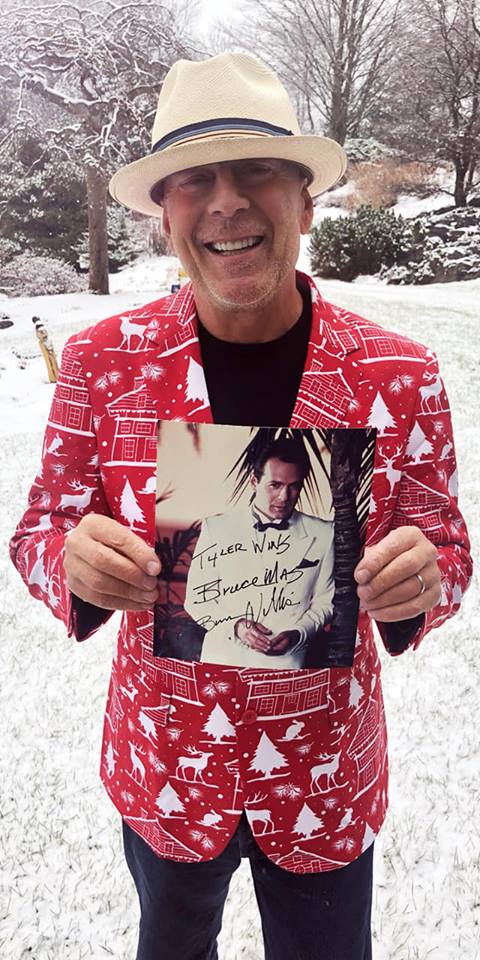 TYLER WINS
BRUCEMAS
Bruce Willis